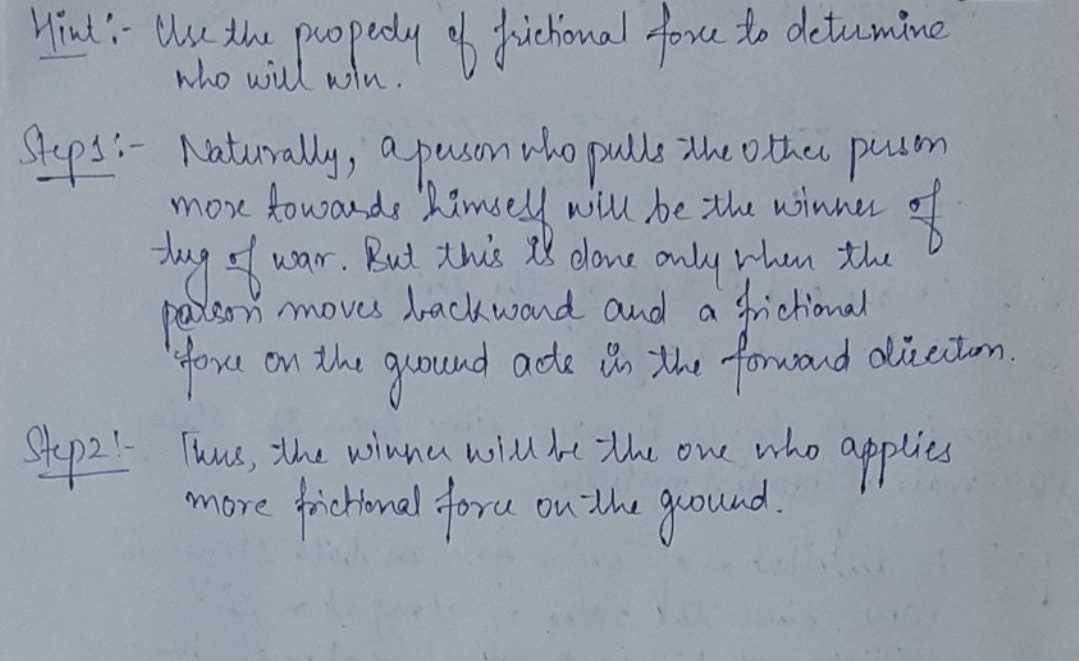 Hint :- Use the propedy of frictional force to determine
who will win.
Step1 :- Naturally, a person who pulls the other person
more towards himself will be the winner of
tug of war. But this is done only when the
person moves backward and a frictional
force on the ground acts in the forward direction.
Step2 :- Thus, the winner will be the one who applies
more frictional force on the ground.